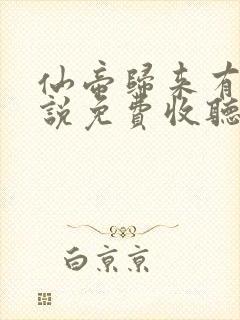 仙帝歸来有
說免費收聽
白京京